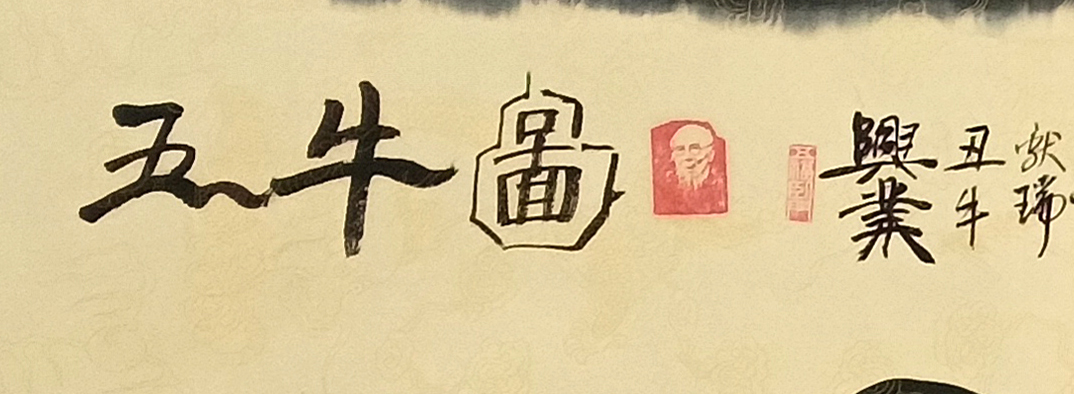 五牛圖
興業
丑牛
献瑞